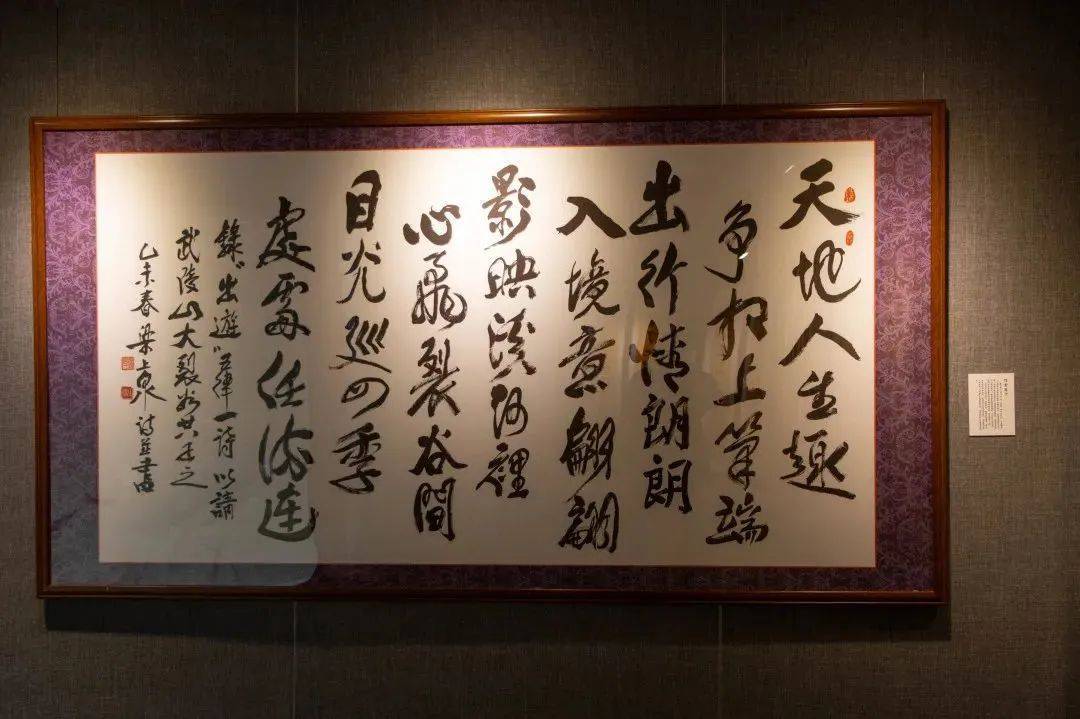 天地人生趣
争相上筆端
出行情朗朗
入境意翩翩
影映溪河裡
心飛裂谷間
目光巡四季
處處任流連
錄“出遊”五律一詩以請
武陵山大裂谷共正之
乙未春梁上泉詩並書